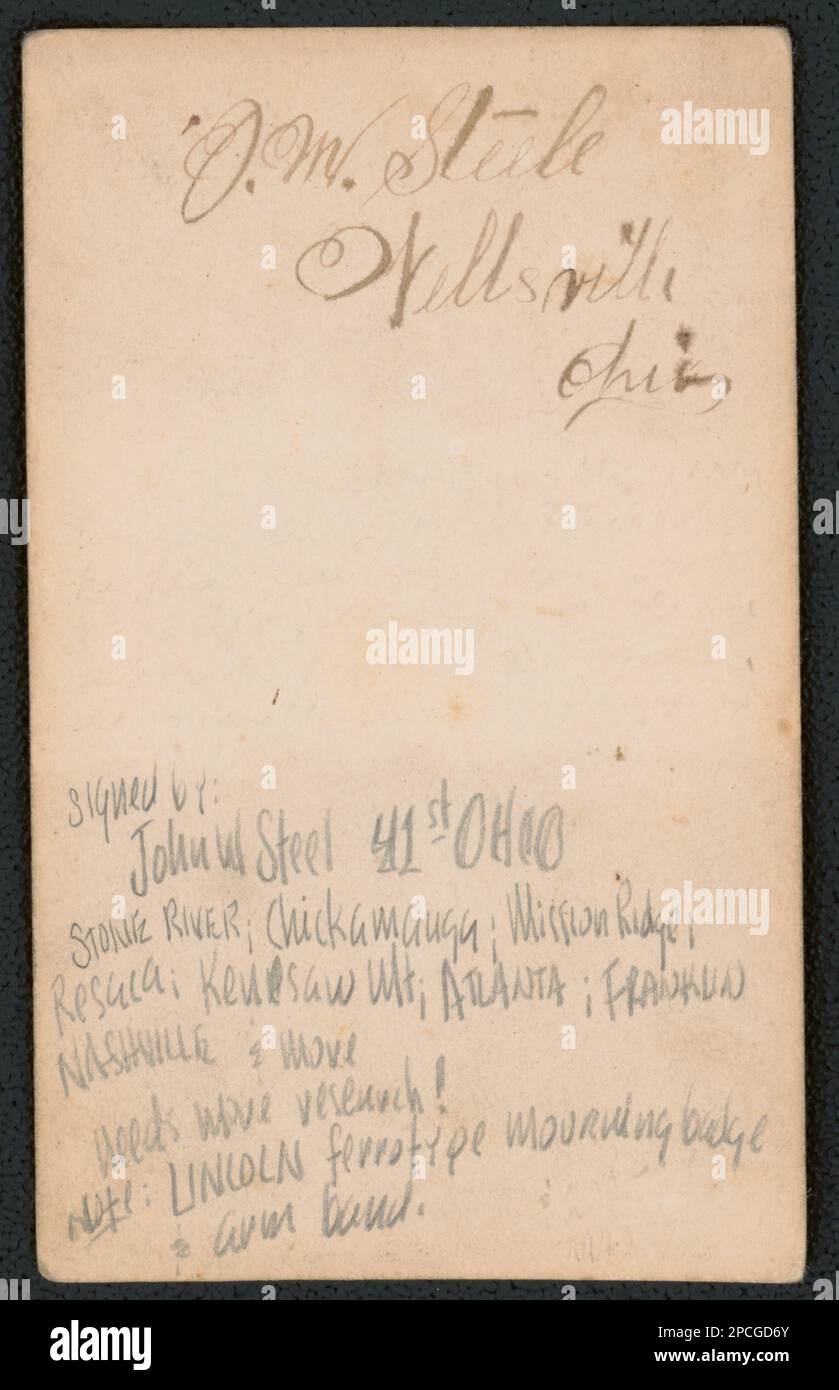 J. W. Steele
Wellsville
Ohio
signed by:
John W Steel 41st OHIO
STONE RIVER; Chickamauga; Mission Ridge;
Resaca; Kenesaw Mt; ATLANTA; FRANKLIN
NASHVILLE & more
needs more research!
Note: LINCOLN ferrotype mourning badge
& arm band.
alamy
alamy
alamy
alamy
Image ID: 2PCGD6Y
www.alamy.com